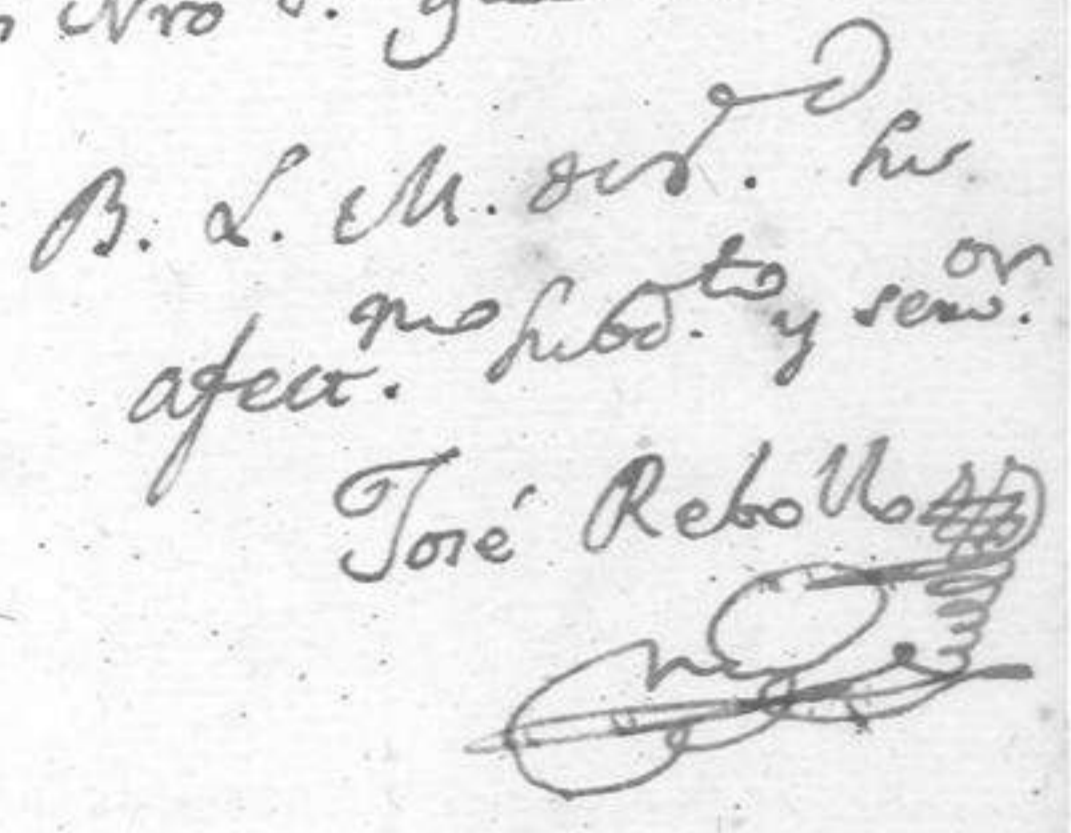 Nro S.
B. L. M. de Vd. su
afect.mo subd.to y serv.or
José Rebollo